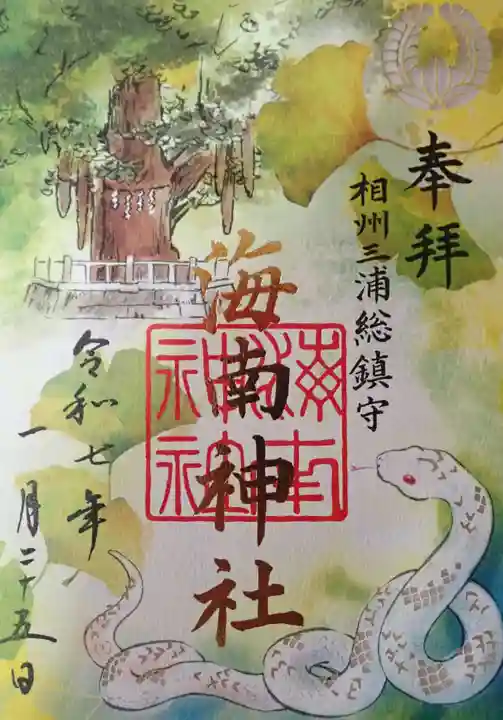 奉拝
相州三浦総鎮守
海南神社
令和七年
一月二十五日